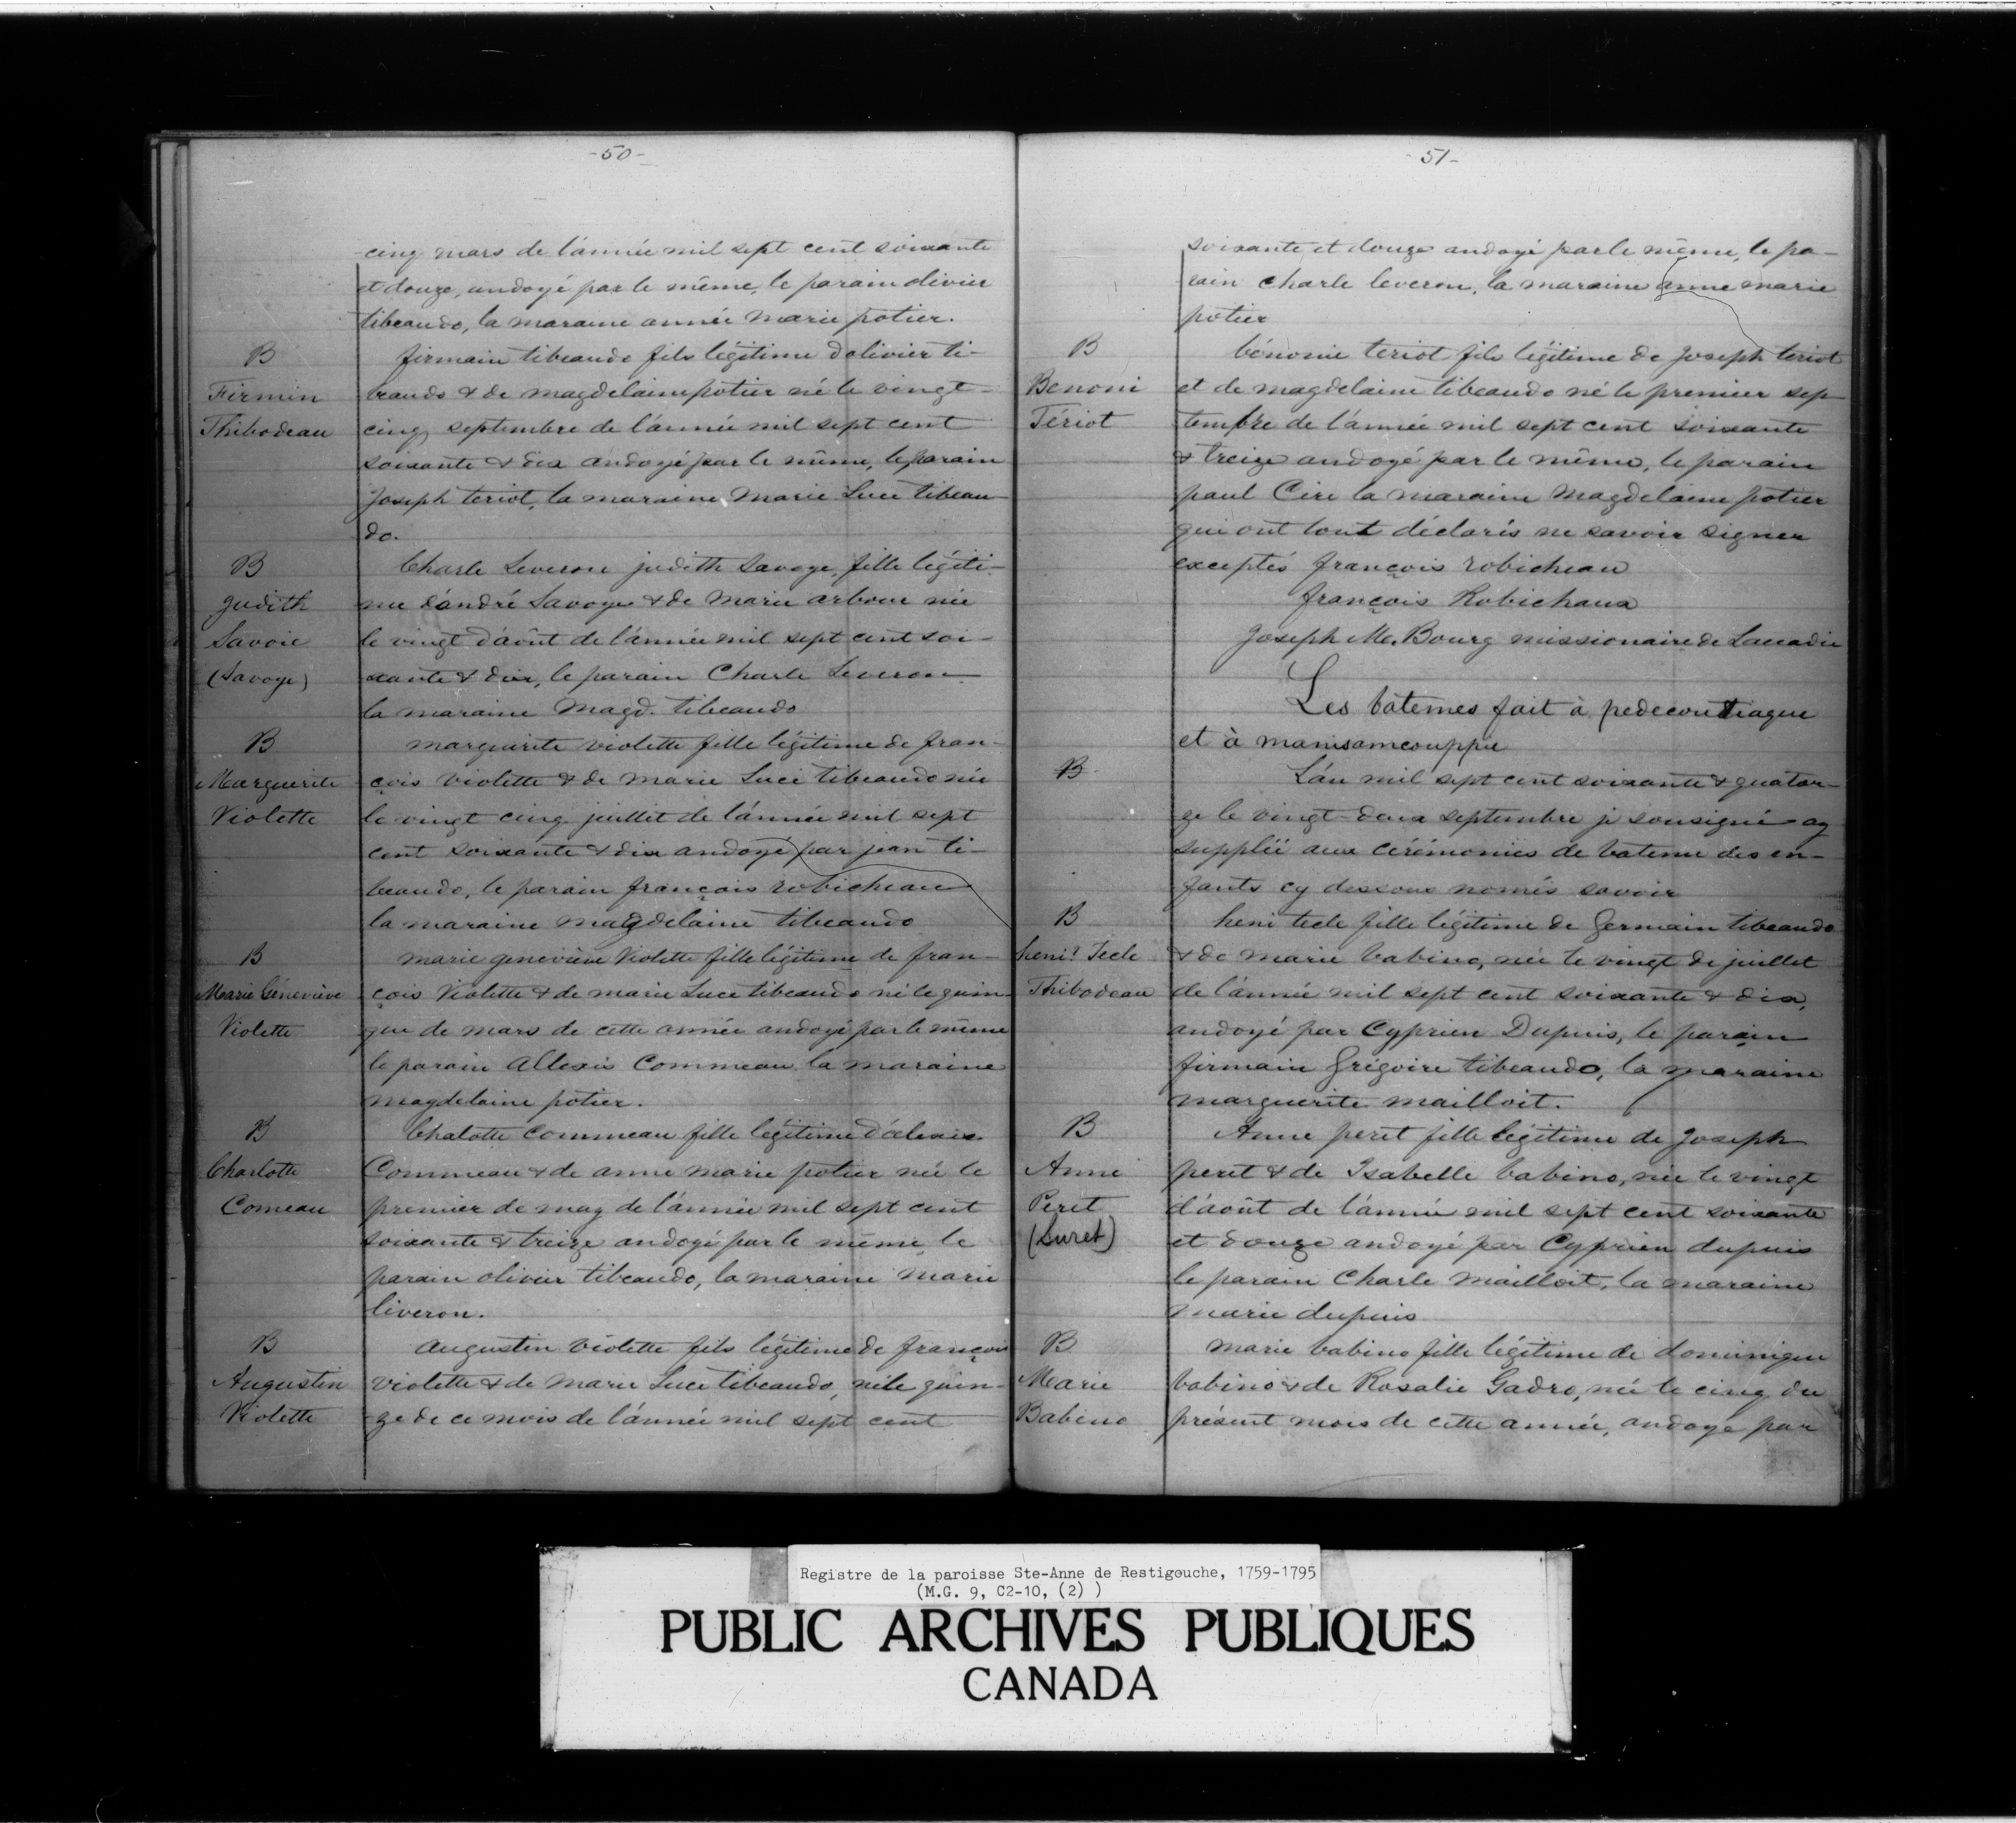 -50-
cinq mars de l'année mil sept cent soixante
et douze, andoyé par le même, le parain olivier
tibeaudo, la maraine année marie potier.
B
Firmin
Thibodeau
firmain tibeaudo fils légitime d'olivier ti-
beaudo & de magdelaine potier né le vingt-
cinq septembre de l'année mil sept cent
soixante & dix andoyé par le même, le parain
Joseph teriot, la maraine Marie Luce tibeau-
do.
B
Judith
Savoie
(Savoye)
Charle Leveron judith Savoye, fille légiti-
me d'andré Savoye & de Marie arbour née
le vingt d'août de l'année mil sept cent soi-
xante & dix, le parain Charle Leveron
la maraine Magd. tibeaudo
B
Marguerite
Violette
marguerite violette fille légitime de fran-
çois violette & de marie Luce tibeaudo née
le vingt cinq juillet de l'année mil sept
cent soixante & dix andoyé par jean ti-
beaudo, le parain françois robicheau
la maraine magdelaine tibeaudo
B
Marie Géneviève
Violette
marie geneviève Violette fille légitime de fran-
çois Violette & de marie Luce tibeaudo né le quin-
que de mars de cette année andoyé par le même
le parain Allexis Commeau la maraine
magdelaine potier.
B
Charlotte
Comeau
Chalotte Commeau fille légitime d'alexis
Commeau & de anne marie potier née le
premier de may de l'année mil sept cent
soixante & treize andoyé par le même, le
parain olivier tibeaudo, la maraine Marie
liveron.
B
Augustin
Violette
Augustin violette fils légitime de françois
violette & de Marie Luce tibeaudo, né le quin-
ze de ce mois de l'année mil sept cent
51-
soixante et douze andoyé par le même, le pa-
rain Charle leveron, la maraine anne marie
potier
B
Benoni
Tériot
bénonie teriot fils légitime de Joseph teriot
et de magdelaine tibeaudo né le premier sep-
tembre de l'année mil sept cent soixante
& treize andoyé par le même, le parain
paul Cire la maraine Magdelaine potier
qui ont tout déclarés ne savoir signer
exceptés françois robicheau
françois Robichaux
Joseph M. Bourg missionaire de Lacadie
Les batemes fait à pedecoutiague
et à manisamcouppie
B
L'an mil sept cent soixante & quator-
ze le vingt-deux septembre je sousigné ay
supplié aux cérémonies de bateme des en-
fants cy dessous només savoir
B
heni? Tecle
Thibodeau
heni tecle fille légitime de Germain tibeaudo
& de marie babino, née le vingt de juillet
de l'année mil sept cent soixante & dix,
andoyé par Cyprien Dupuis, le parain
firmain Grégoire tibeaudo, la maraine
marguerite mailloit.
B
Anne
Peret
(Suret)
Anne peret fille légitime de Joseph
peret & de Isabelle babino, née le vingt
d'août de l'année mil sept cent soixante
et douze andoyé par Cyprien dupuis
le parain Charle mailloit, la maraine
marie dupuis
B
Marie
Babino
marie babino fille légitime de dominique
babino & de Rosalie Gadro, née le cinq du
présent mois de cette année, andoyé par
Registre de la paroisse Ste-Anne de Restigouche, 1759-1795
(M.G. 9, C2-10, (2) )
PUBLIC ARCHIVES PUBLIQUES
CANADA